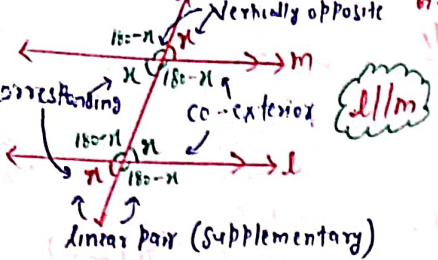 Vertically opposite
180-x x
m
x 180-x
corresponding
co-exterior
l//m
180-x x
x 180-x
l
linear pair (supplementary)